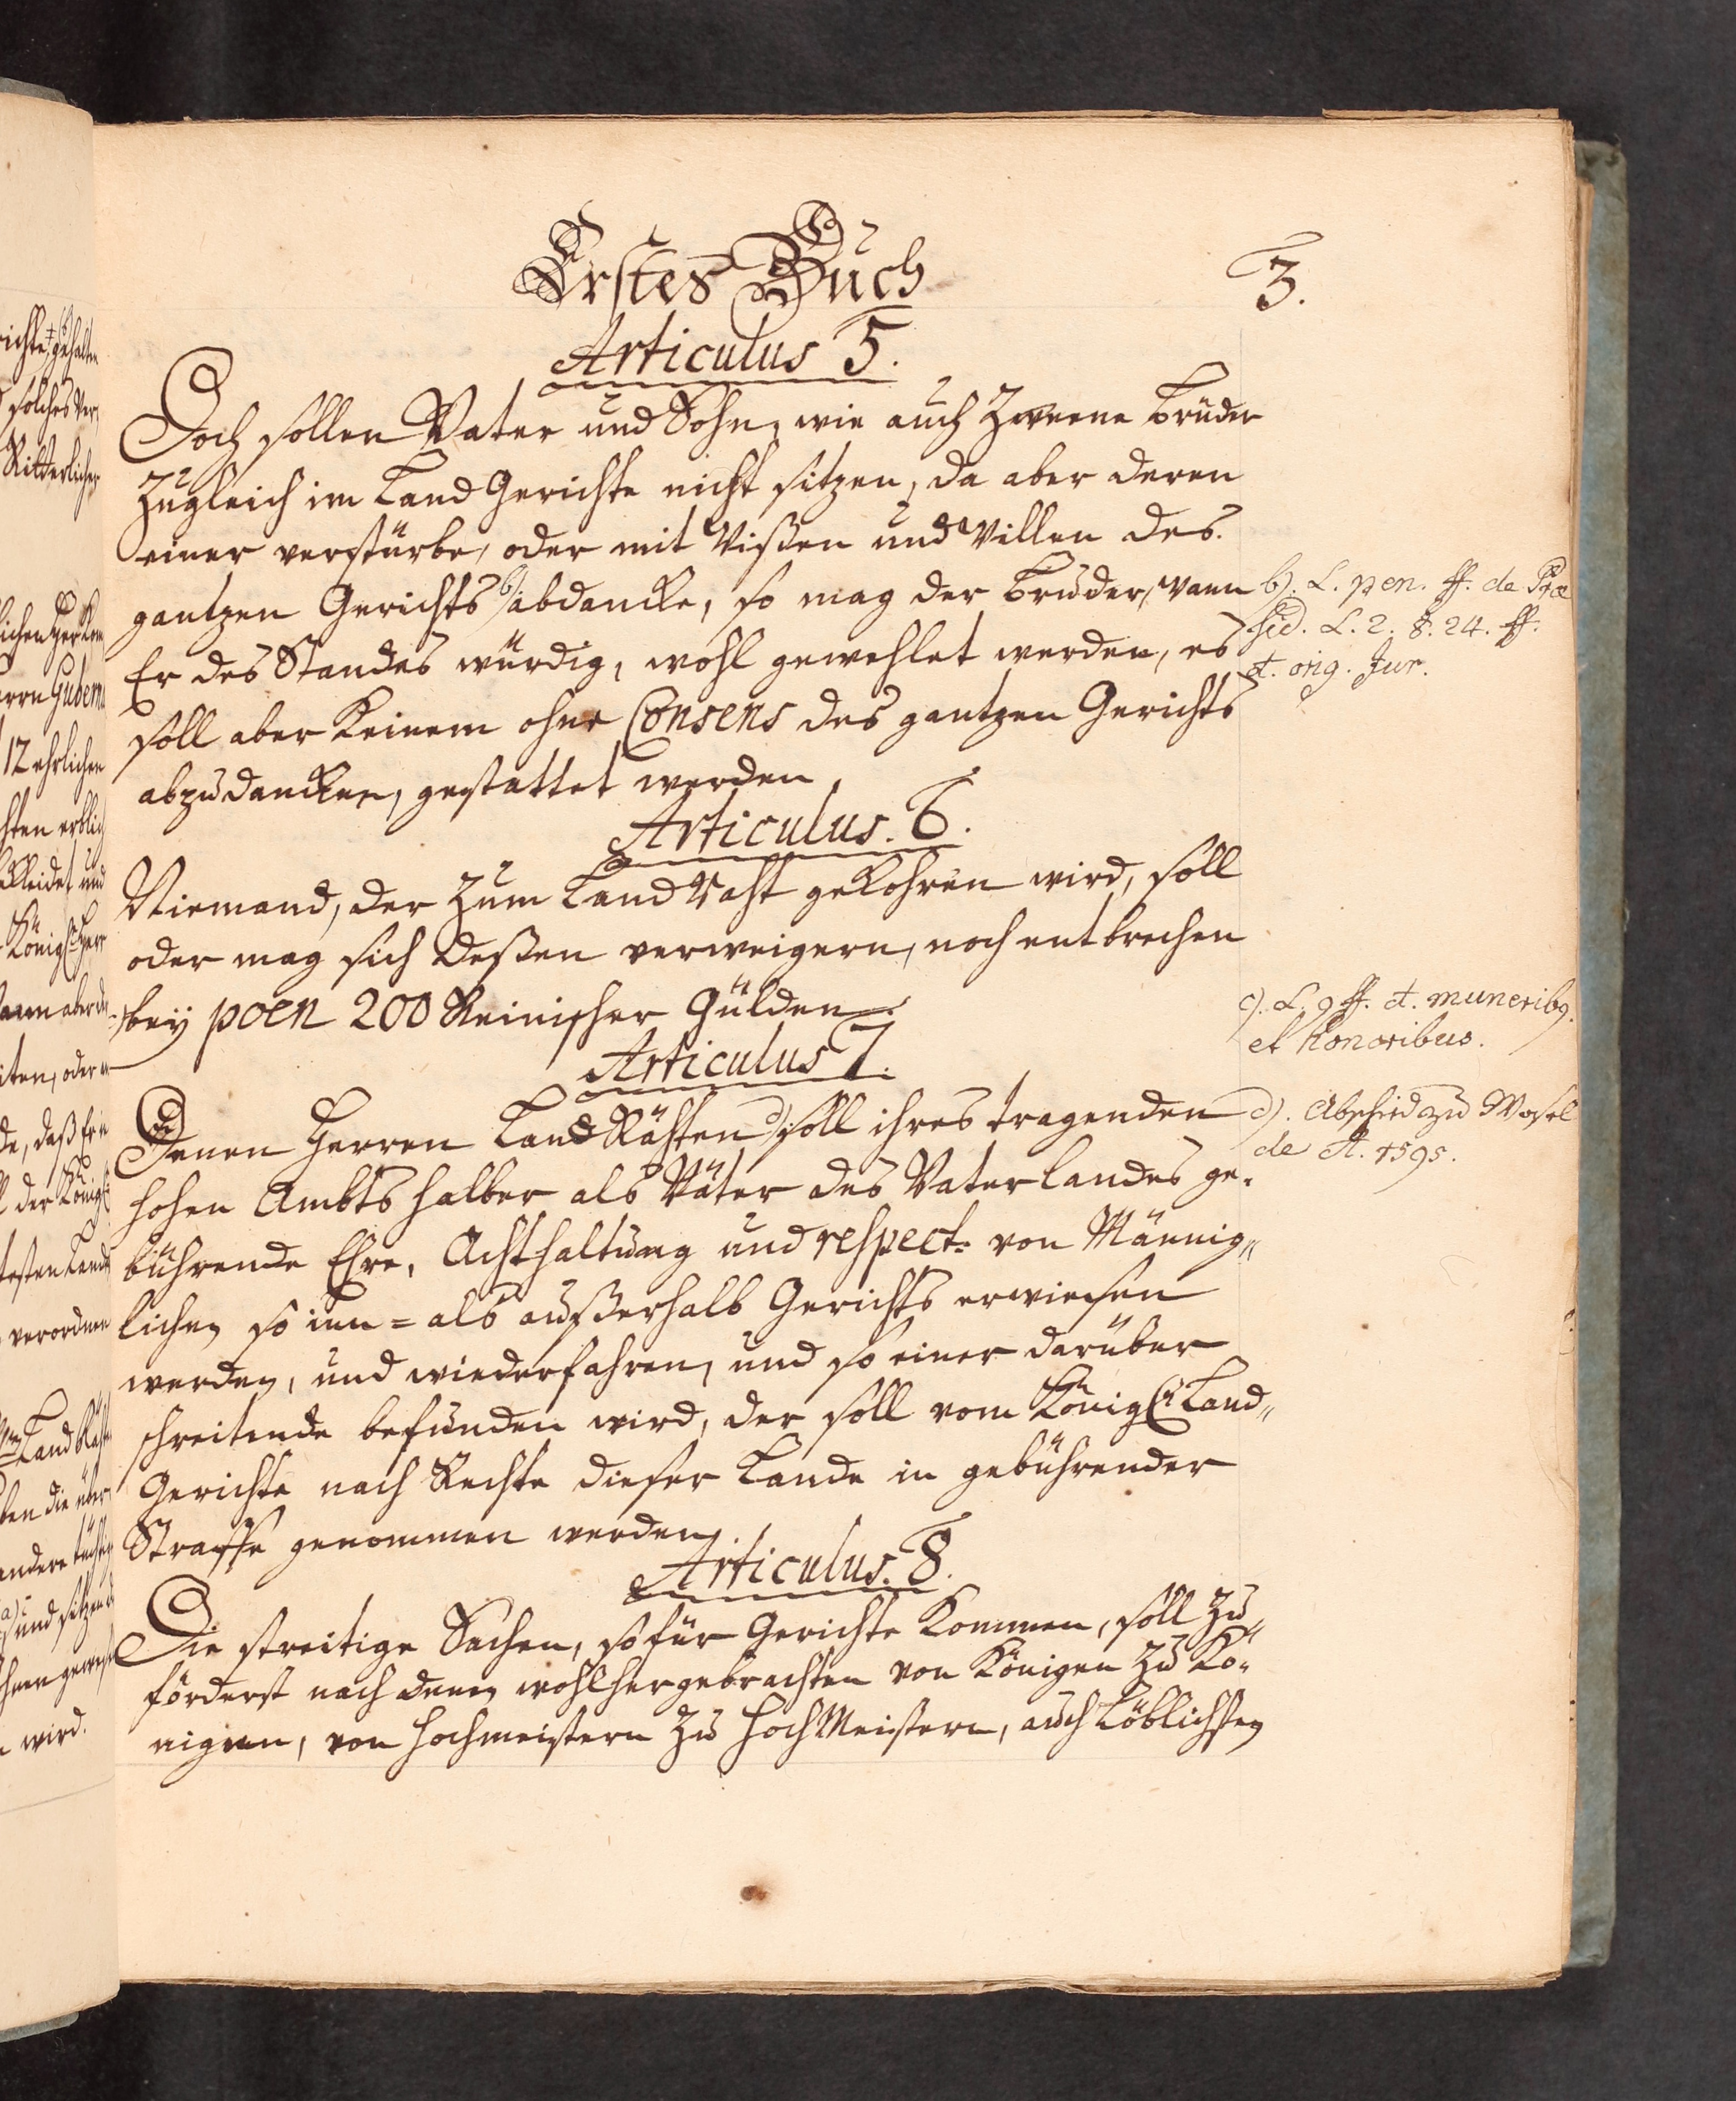 Erstes Buch
3.
Articulus 5.
Doch sollen Vater und Sohn, wie auch Zweene Brüder
Zugleich im Land Gerichte nicht sitzen, da aber deren
einer verstürbe, oder mit Wißen und Willen des
gantzen Gerichts b) abdancke, so mag der Bruder, wann
Er des Standes würdig, wohl gewehlet werden, es
soll aber Keinem ohne Consens des gantzen Gerichts
abzudancken, gestattet werden.
b). L. pen. ff. de Præ
sid. L. 2. §. 24. ff.
d. orig. Jur.
Articulus. 6.
Niemand, der Zum Land Raht gekohren wird, soll
oder mag sich deßen verweigern, noch entbrechen
bey poen 200 Reinischer Gülden.
c). L. 9 ff. d. muneribq.
et honoribus.
Articulus 7.
Denen Herren Land Rähten d) soll ihres tragenden
hohen Ambts halber als Väter des Vaterlandes ge-
bührende Ehre, Achthaltung und respect: von Männig„
lichen so inn= als außerhalb Gerichts erwiesen
werden, und wiederfahren, und so einer darüber
schreitende befunden wird, der soll vom Königl: Land„
Gerichte nach Rechte dieser Lande in gebührender
Straffe genommen werden.
d). Abschied zu Wesel
de A. 1595.
Articulus. 8.
Die streitige Sachen, so für Gerichte Kommen, soll zu„
förderst nach denen wohlhergebrachten von Königen zu Kö-
nigen, von Hochmeistern Zu HochMeistern, auch Löblichsten